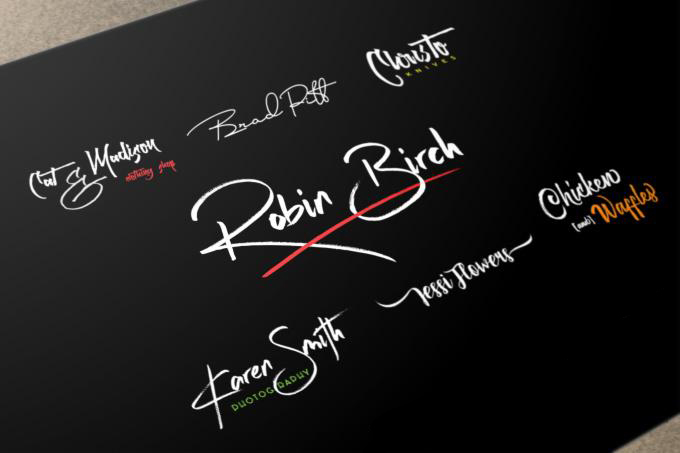 Christo
KNIVES
Brad Pitt
Cat & Madison
clothing shop
Robin Birch
Chicken
[and] Waffles
Jessi Flowers
Karen Smith
PHOTOGRAPHY